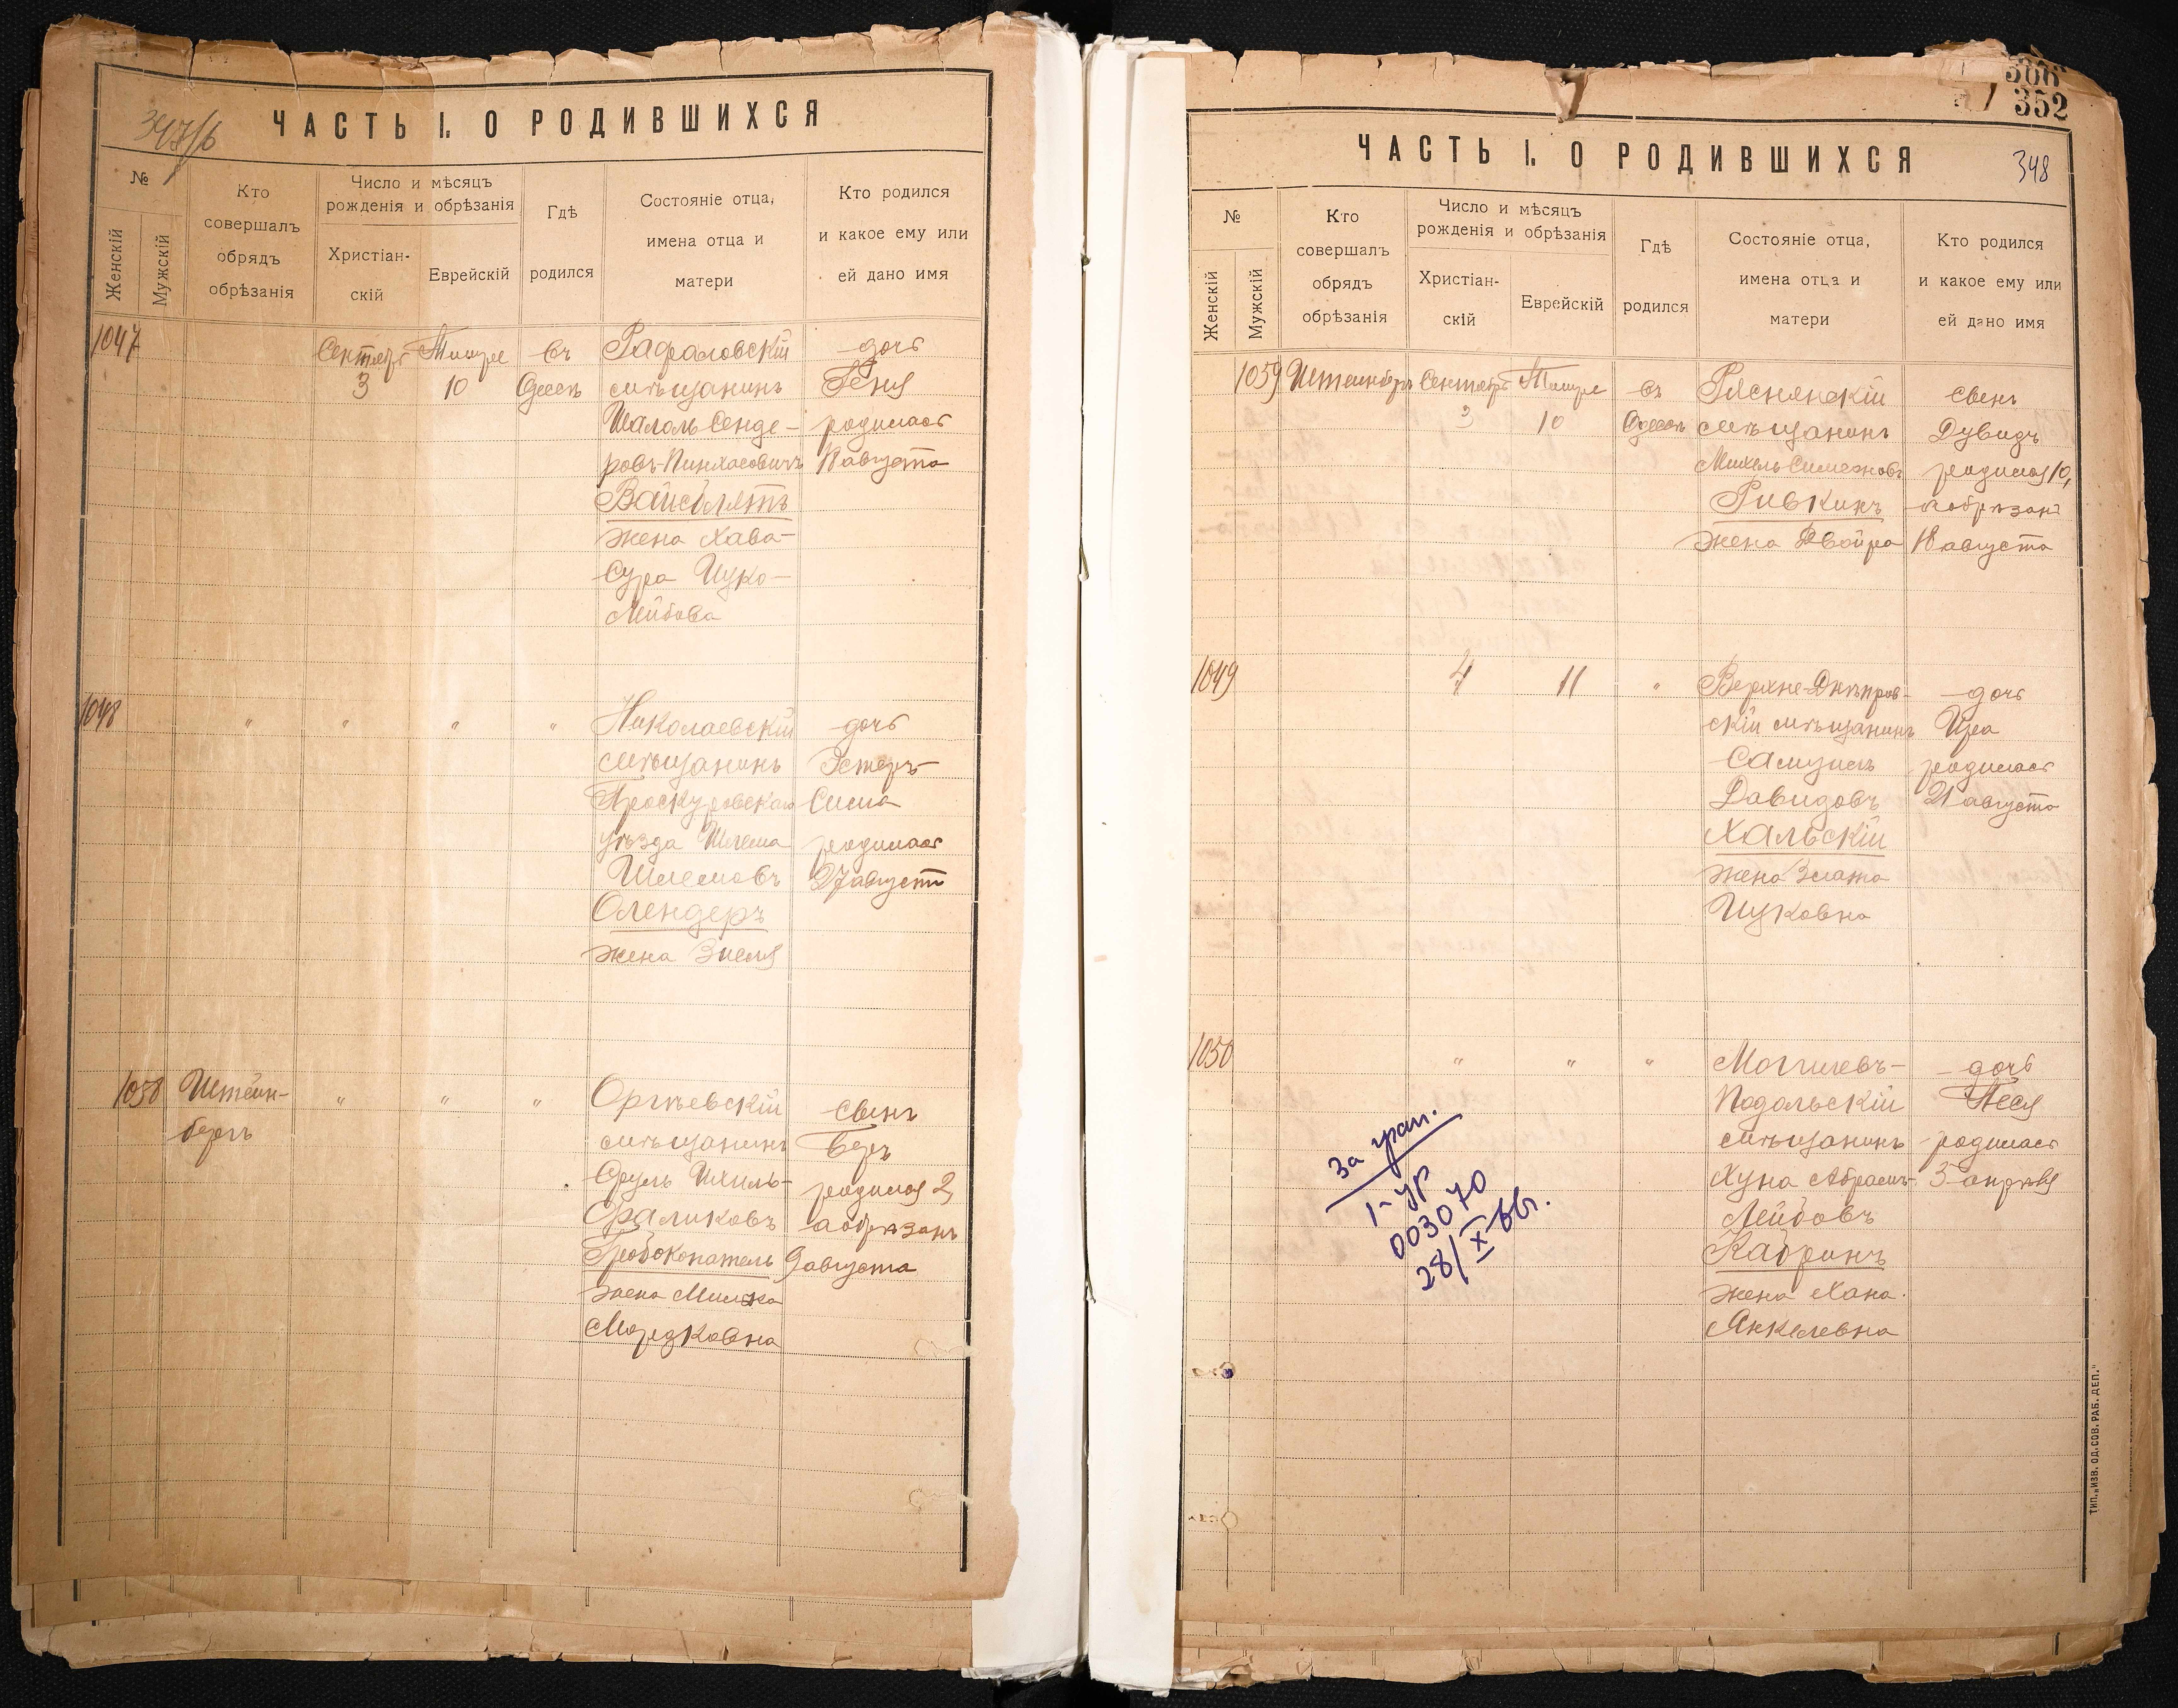 347/б
ЧАСТЬ I. О РОДИВШИХСЯ
№
Женскій
Мужскій
Кто
совершалъ
обрядъ
обрѣзанія
Число и мѣсяцъ
рожденія и обрѣзанія
Христіан-
скій
Еврейскій
Гдѣ
родился
Состояніе отца,
имена отца и
матери
Кто родился
и какое ему или
ей дано имя
1047
Сентябрь
3
Тишре
10
въ
Одессѣ
мѣщанинъ
Шалом Сенде-
ровъ-Пинхасовичъ
Вайсблятъ
жена Хава-
Сура Ицко-
Лейбова
дочь
Геня
родилась
18 августа
1048
" " " "
Николаевскій
мѣщанинъ
Проскуровскаго
уѣзда Шлема
Шлемовъ
Олендеръ
жена Зисля
дочь
Эстеръ-
Сима
родилась
27 августа
1058
Штейн-
бергъ
" " "
Оргѣевскій
мѣщанинъ
Сруль Ихиль-
Сраликовъ
Гробокопатель
жена Милька
Мордковна
сынъ
Беръ
родился 2,
а обрѣзанъ
9 августа
366
352
348
ЧАСТЬ I. О РОДИВШИХСЯ
№
Женскій
Мужскій
Кто
совершалъ
обрядъ
обрѣзанія
Число и мѣсяцъ
рожденія и обрѣзанія
Христіан-
скій
Еврейскій
Гдѣ
родился
Состояніе отца,
имена отца и
матери
Кто родился
и какое ему или
ей дано имя
1059
Штейнбергъ
Сентябрь
3
Тишре
10
въ
Одессѣ
Ряснянскій
мѣщанинъ
Михель Симоновъ
Ривкинъ
жена Двойра
сынъ
Дувидъ
родился 10,
а обрѣзанъ
18 августа
1049
4
11
"
Верхне-Днѣпров-
скій мѣщанинъ
Самуилъ
Давидовъ
Хальскій
жена Злата
Ицковна
дочь
Ира
родилась
21 августа
1050
" " "
Могилевъ-
Подольскій
мѣщанинъ
Хуна Абрамъ-
Лейбовъ
Кабринъ
жена Хана
Янкелевна
дочь
Песя
родилась
3 апрѣля
За гран.
I-УР
003070
28/X-66г.
ТИП. „ИЗВ. ОД. СОВ. РАБ. ДЕП."